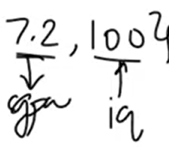 7.2, 100
cgpa iq